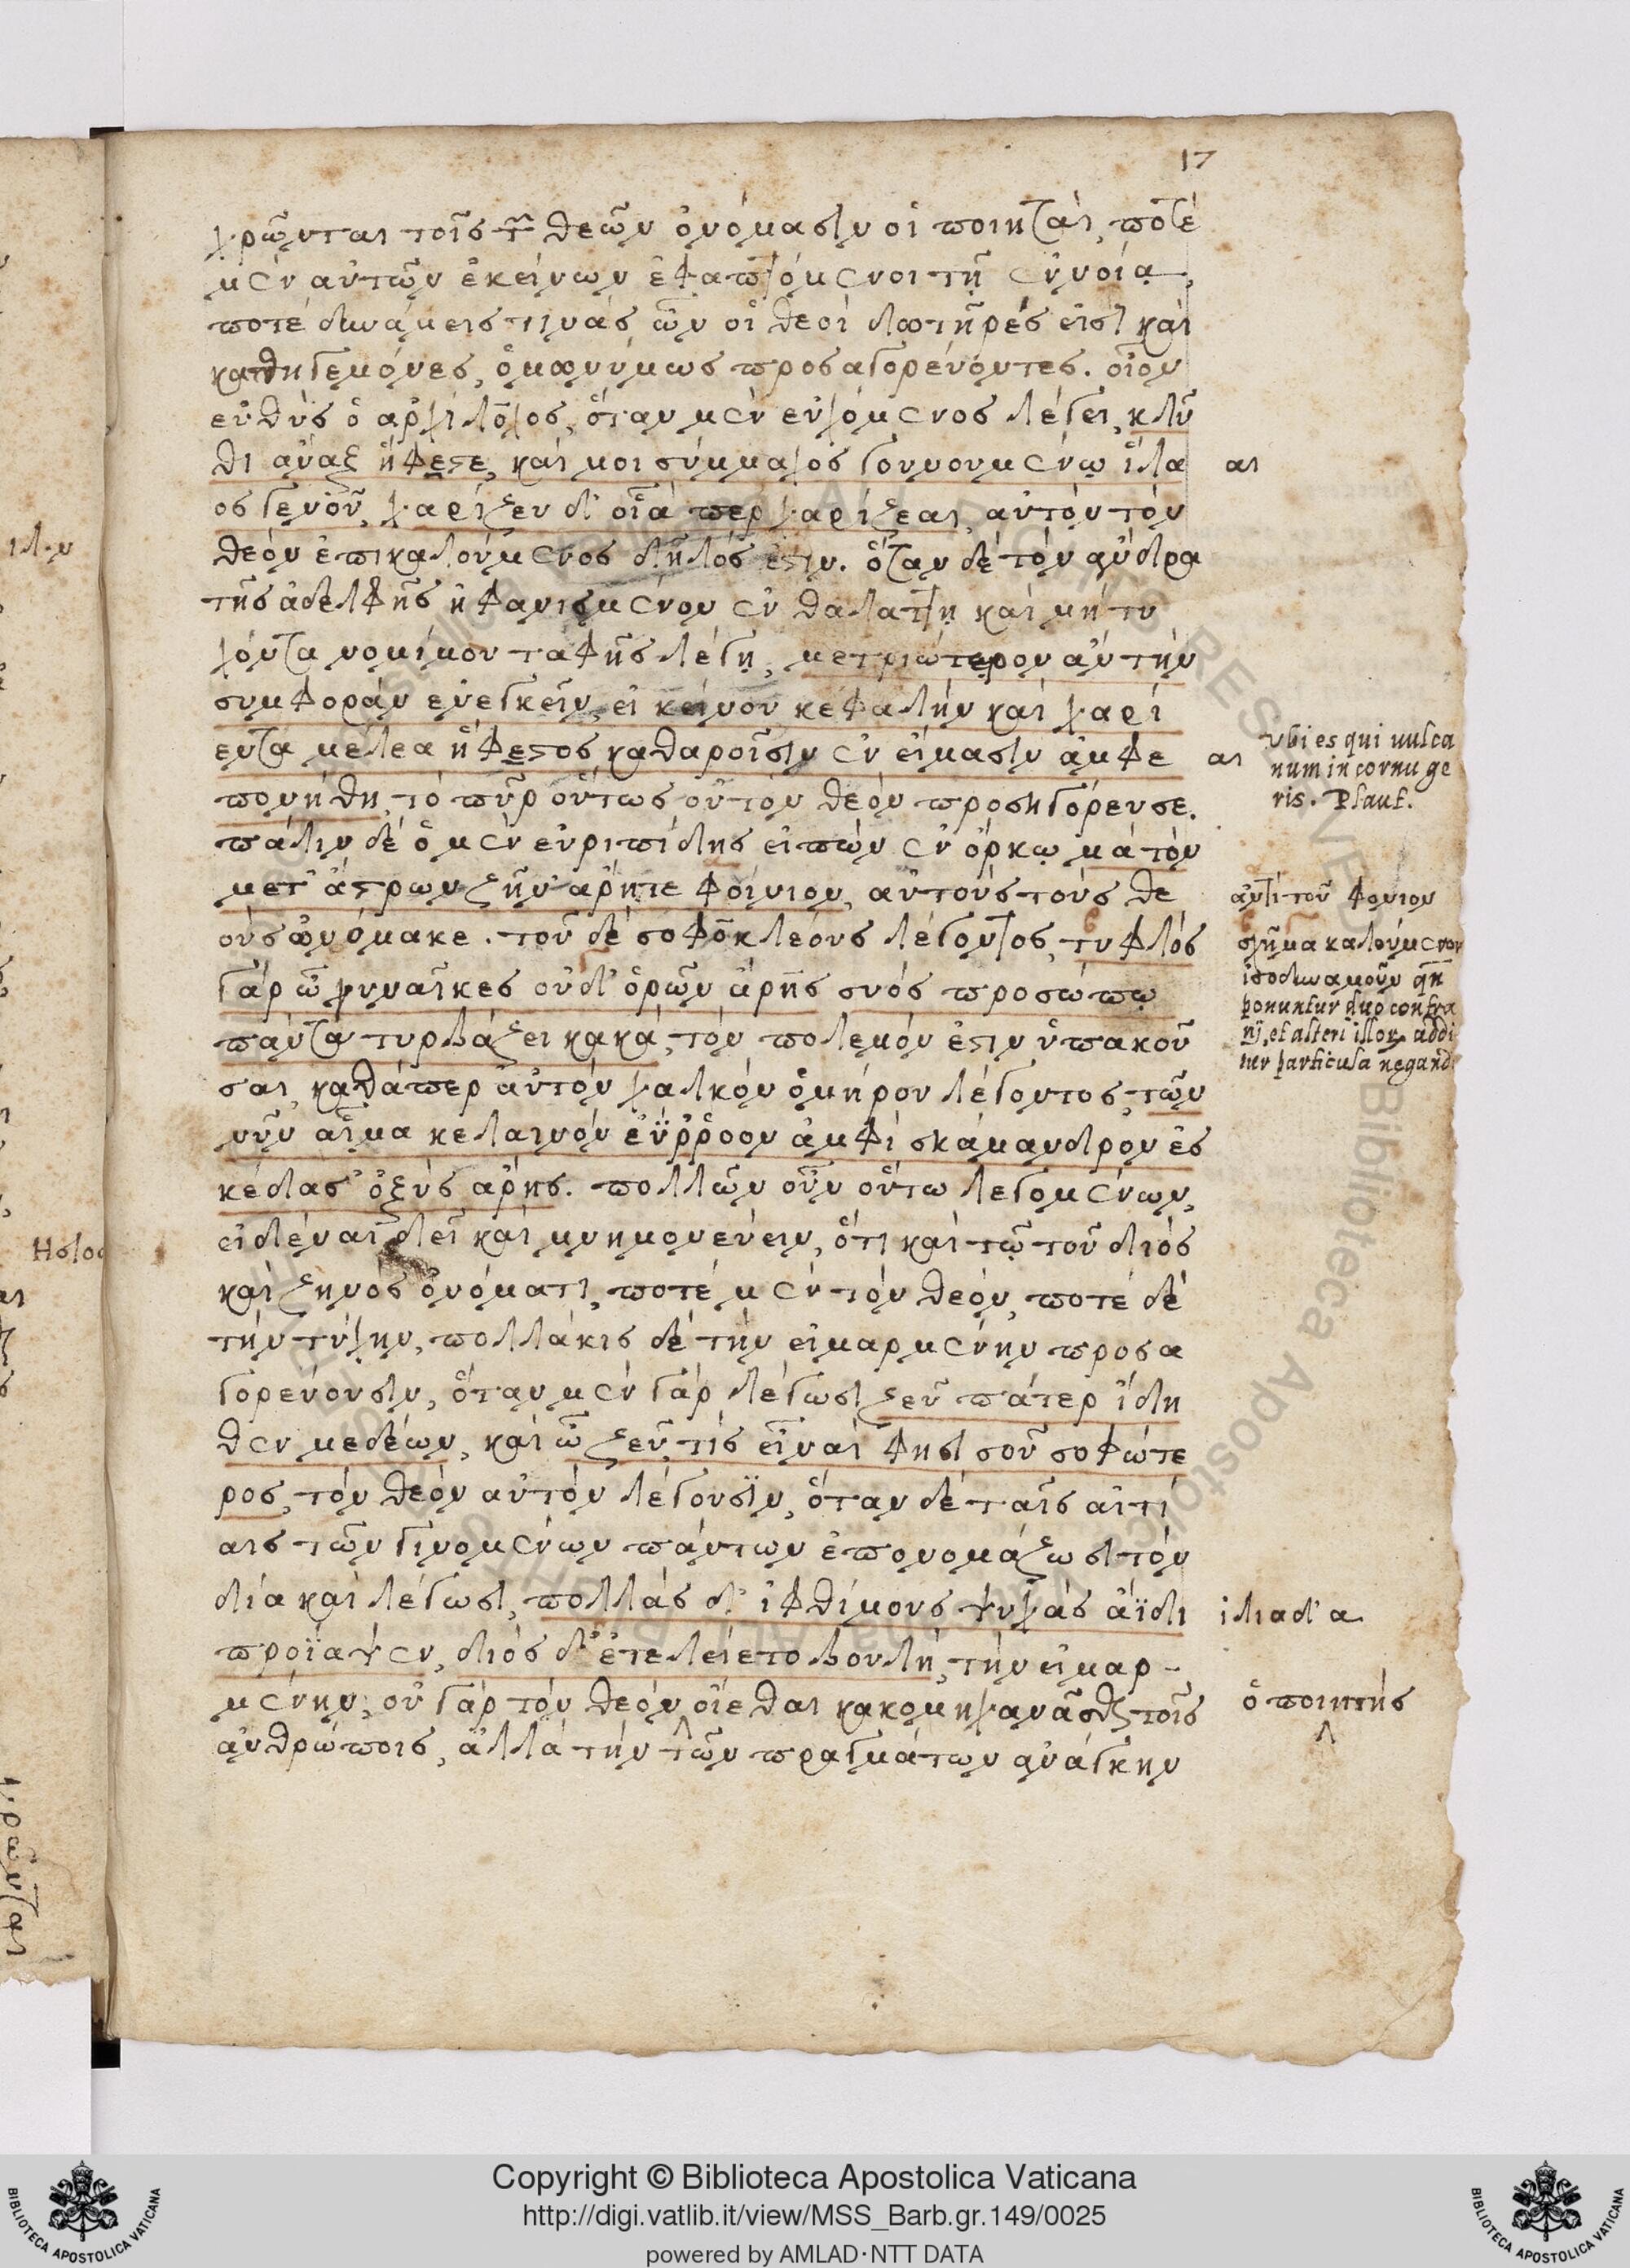 17
χρῶνται τοῖς τῶν θεῶν ὀνόμασιν οἱ ποιηταὶ, ποτὲ
μὲν αὐτῶν ἐκείνων ἐφαπτόμενοι τῇ ἐννοίᾳ,
ποτὲ δυνάμεις τινάς ὧν οἱ θεοὶ δωτῆρές εἰσὶ καὶ
καθηγεμόνες, ὁμωνύμως προσαγορεύοντες. οἷον
εὐθὺς ὁ ἀρχίλοχος, ὅταν μὲν εὐχόμενος λέγει, κλῦ
θι ἄναξ ἥφεστε, καί μοι σύμμαχος γουνουμένῳ ἵλα αι
ος γενοῦ, χαρίζευ δ' οἷά περ χαρίζεαι, αὐτὸν τὸν
θεὸν ἐπικαλούμενος δῆλός ἐστιν. ὅταν δὲ τὸν ἄνδρα
τῆς ἀδελφῆς ἠφανισμένον ἐν θαλάττῃ καὶ μὴ τυ
χόντα νομίμου ταφῆς λέγῃ, μετριώτερον ἂν τὴν
συμφορὰν ἐνεγκεῖν, εἰ κείνου κεφαλὴν καὶ χαρί
εντα μέλεα ἥφεστος καθαροῖσιν ἐν εἵμασιν ἀμφε αι
πονήθη, τὸ πῦρ οὕτως οὐ τὸν θεὸν προσηγόρευσε.
πάλιν δὲ ὁ μὲν εὐριπίδης εἰπὼν ἐν ὅρκῳ μὰ τὸν
μετ' ἄστρων ζῆν' ἄρητε φοίνιον, αὐτοὺς τοὺς θε
οὺς ὠνόμακε. τοῦ δὲ σοφοκλέους λέγοντος, τυφλὸς
γὰρ ὦ γυναῖκες οὐδ' ὁρῶν ἄρης συὸς προσώπῳ
πάντα τυρβάζει κακά, τὸν πόλεμόν ἐστιν ὑπακοῦ
σαι, καθάπερ αὖ τὸν χαλκὸν ὁμήρου λέγοντος, τῶν
νῦν αἷμα κελαινὸν ἐΰρροον ἀμφὶ σκάμανδρον ἐσ
κέδασ' ὀξὺς ἄρης. πολλῶν οὖν οὕτω λεγομένων,
εἰδέναι δεῖ καὶ μνημονεύειν, ὅτι καὶ τῷ τοῦ διὸς
καὶ ζηνὸς ὀνόματι, ποτὲ μὲν τὸν θεὸν, ποτὲ δὲ
τὴν τύχην, πολλάκις δὲ τὴν εἱμαρμένην προσα
γορεύουσιν, ὅταν μὲν γὰρ λέγωσι ζεῦ πάτερ ἴδη
θεν μεδέων, καὶ ὦ ζεῦ τίς εἶναι φησὶ σοῦ σοφώτε
ρος, τὸν θεὸν αὐτὸν λέγουσιν, ὅταν δὲ ταῖς αἰτί
αις τῶν γινομένων πάντων ἐπονομάζωσι τὸν
δία καὶ λέγωσι, πολλὰς δ' ἰφθίμους ψυχὰς ἄϊδι
προΐαψεν, διὸς δ' ἐτελείετο βουλή, τὴν εἱμαρ-
μένην, οὐ γὰρ τὸν θεὸν οἴεθαι κακομηχανᾶσθαι τοῖς
ἀνθρώποις, ἀλλὰ τὴν τῶν πραγμάτων ἀνάγκην
Vbi es qui uulca
num in cornu ge
ris. Plaut.
ἀντὶ τοῦ φονιον
σχῆμα καλούμενον
ἰσοδυναμοῦν qñ
ponuntur duo contra
rij, et alteri illor. addi
tur particula negand.
ἰλιαδ' α
ὁ ποιητής